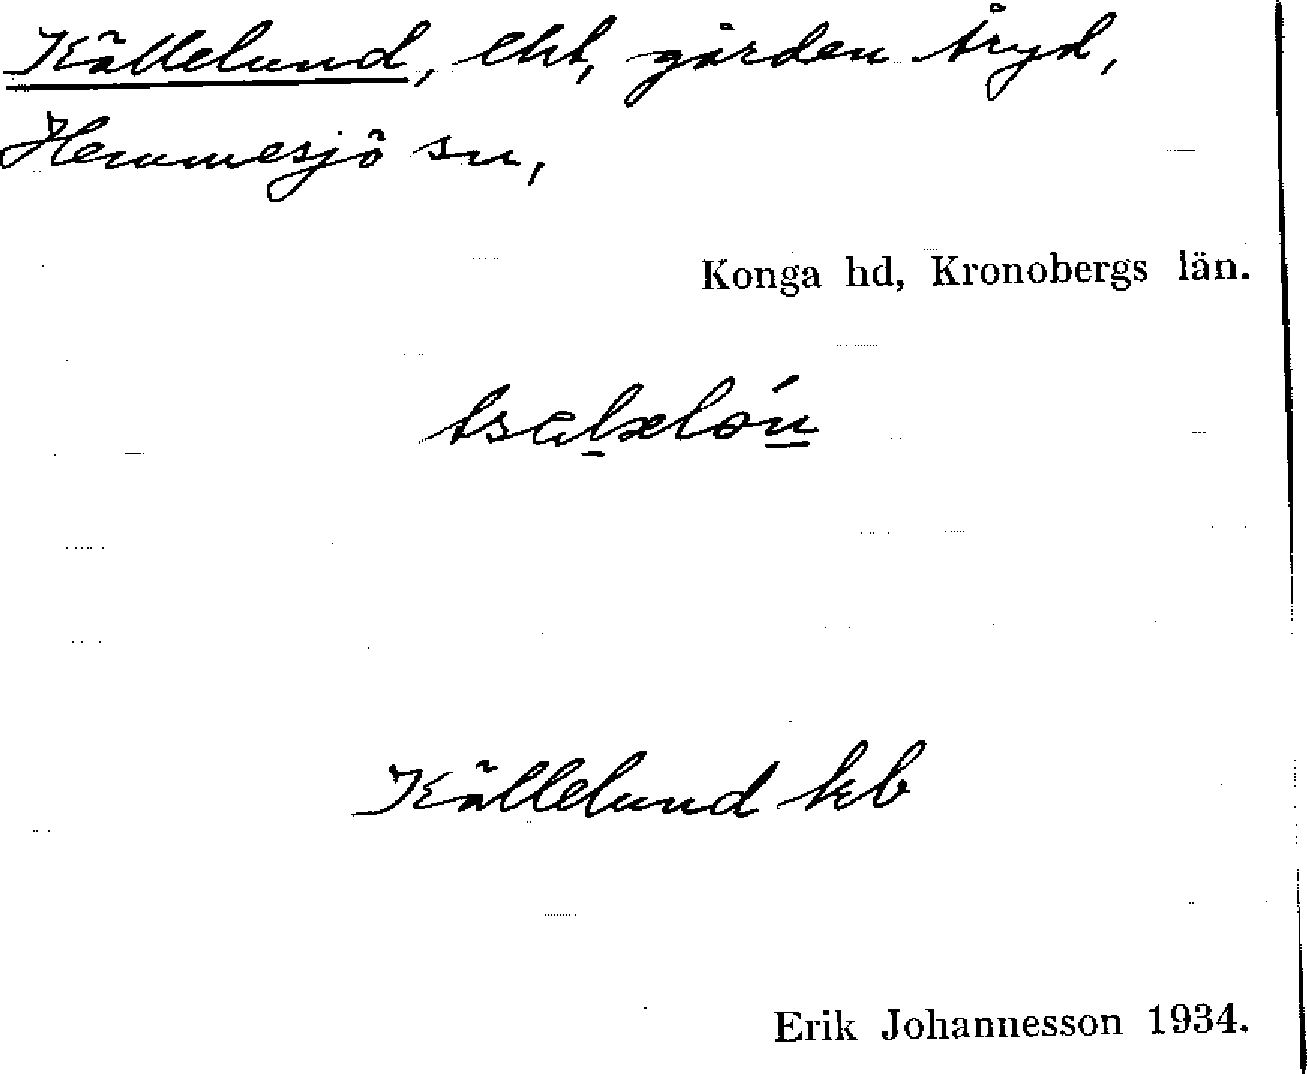 Källelund, lht, gården Åryd,
Hemmesjö sn,
Konga hd, Kronobergs län.
Källelund kb
Erik Johannesson 1934.